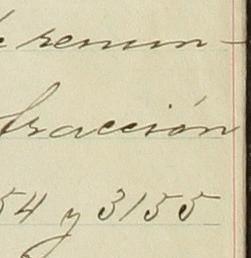 renun-
fracción
54 y 3155